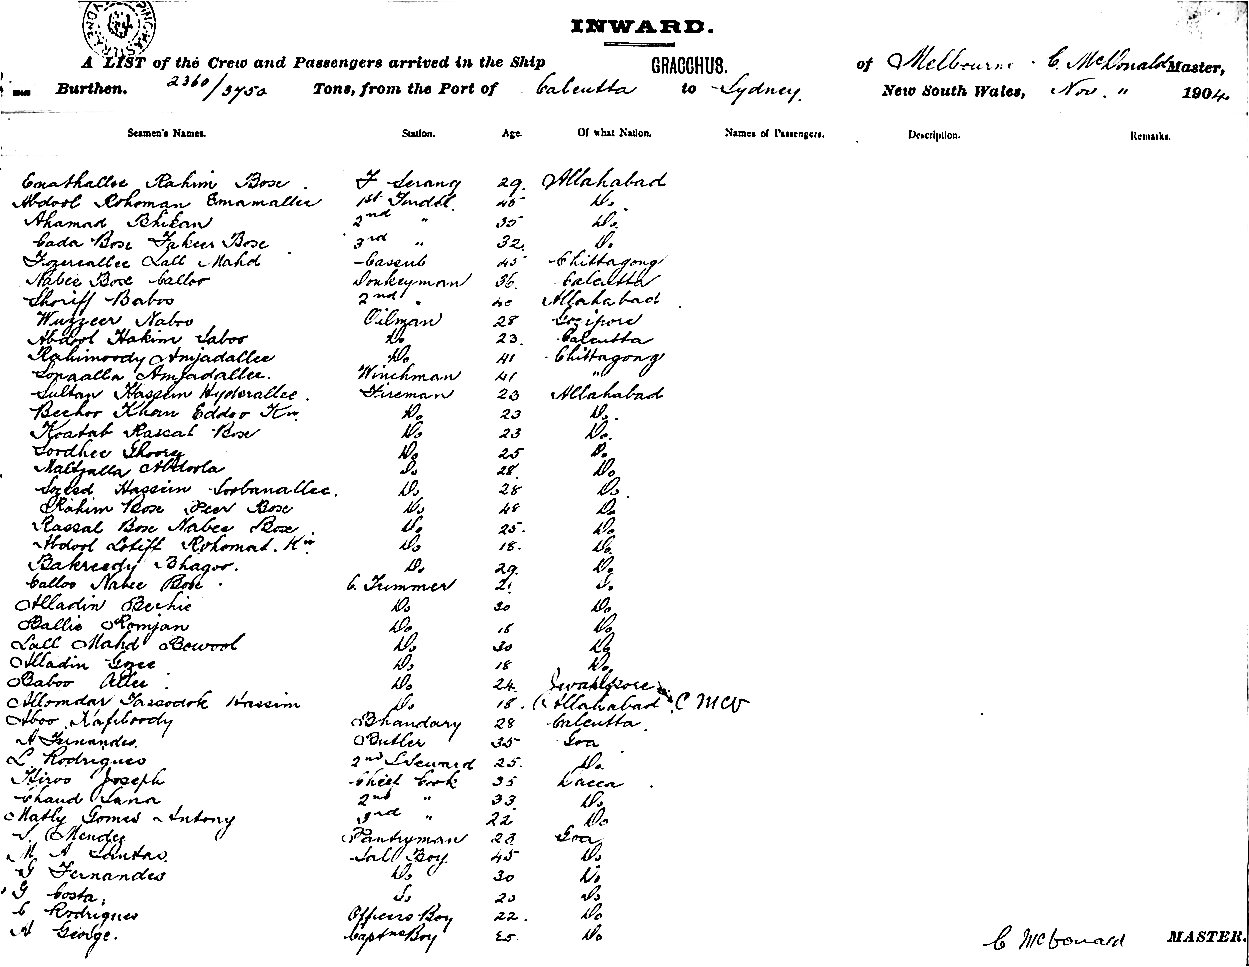 INWARD.
A LIST of the Crew and Passengers arrived in the Ship GRACCHUS. of Melbourne C. McDonald Master,
Burthen. 2360/3750 Tons, from the Port of Calcutta to Sydney. New South Wales, Nov. " 1904
Seamen's Names. Station. Age. Of what Nation. Names of Passengers. Description. Remarks.
Emathallee Rahim Bose. F Serang 29. Allahabad
Abdool Rohoman Emamallee 1st Tindal. 45 Do.
Ahamad Bhikan 2nd " 35 Do.
Cada Bose Fakeer Bose 3rd " 32. Do
Lall Mahd Cassub 45 Chittagong
Nabee Bose Calloo Donkeyman 36. Calcutta
Shariff Baboo 2nd " 40 Allahabad
Wuzzeer Naboo Oilman 28
Abdool Hakim Saboo Do 23. Calcutta
Rahimoody Amjadallee Do. 41 Chittagong
Sonaalla Amjadallee. Winchman 41 "
Sultan Hassein Hyderallee. Fireman 23 Allahabad
Bechoo Khan Eddoo Kn. Do 23 Do.
Rassal Bose Do 23 Do.
Do 25 Do
Abdoola Do 28 Do
Hassein Sorbanallee. Do 28 Do
Rahim Bose Peer Bose Do 48 Do
Rassal Bose Nabee Bose Do 25. Do
Abdool Lotiff Rohomat. Kn Do 18. Do
Bakreedy Bhagoo. Do 29 Do
Calloo Nabee Bose. C. Trimmer 21 Do
Alladin Bechie Do 30 Do
Ballie Romjan Do 18 Do
Lall Mahd Bowool Do 30 Do
Alladin Do 18 Do.
Baboo Allee Do 24.
Allomdar Hassim Do 18. Allahabad C McD
Aboo Bhandary 28 Calcutta.
A Fernandes. Butler 35 Goa
L. Rodrigues 2nd Steward 25. Do.
Joseph Chief Cook 35 Dacca
Chaud Sana 2nd " 33 Do
Matly Gomes Antony 3rd " 22. Do
S. Mendes Pantryman 28 Goa
M. A. Santas. Sall Boy 45 Do
G Fernandes Do 30 Do
G Costa, Do 20 Do
C Rodrigues Officers Boy 22. Do
A George. Captns Boy 25. Do
C McDonald MASTER.